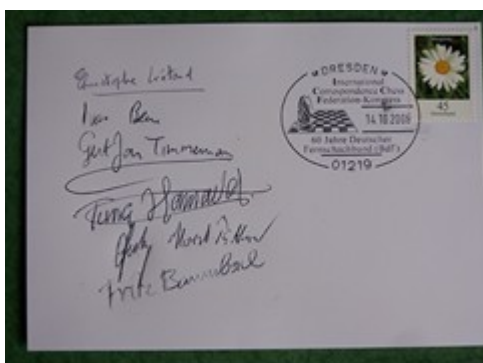 Christophe Léotard
Ivar Bern
Gert Jan Timmerman
Tunç Hamarat
Horst Rittner
Fritz Baumbach
DRESDEN
International
Correspondence Chess
Federation-Kongress
14.10.2008
60 Jahre Deutscher
Fernschachbund (BdF)
01219
45